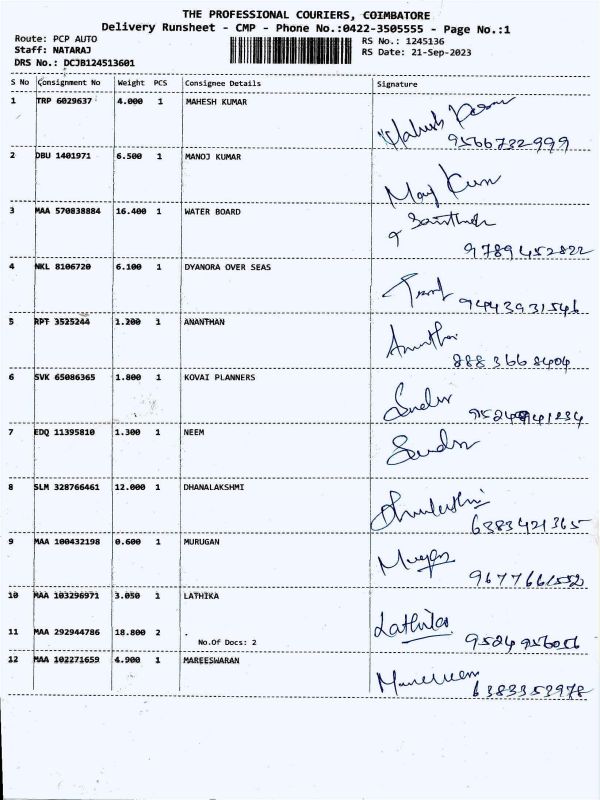 THE PROFESSIONAL COURIERS, COIMBATORE
Delivery Runsheet - CMP - Phone No.:0422-3505555 - Page No.:1
Route: PCP AUTO
RS No.: 1245136
Staff: NATARAJ
RS Date: 21-Sep-2023
DRS No.: DCJB124513601
S No Consignment No Weight PCS Consignee Details Signature
1 TRP 6029637 4.000 1 MAHESH KUMAR
Mahesh Kumar
9566732999
2 DBU 1401971 6.500 1 MANOJ KUMAR
Manoj Kumar
3 MAA 570838884 16.400 1 WATER BOARD
9789452822
4 NKL 8106720 6.100 1 DYANORA OVER SEAS
9443931546
5 RPT 3525244 1.200 1 ANANTHAN
Ananthan
888 366 8404
6 SVK 65086365 1.800 1 KOVAI PLANNERS
7 EDQ 11395810 1.300 1 NEEM
8 SLM 328766461 12.000 1 DHANALAKSHMI
6383421365
9 MAA 100432198 0.600 1 MURUGAN
Murugan
10 MAA 103296971 3.050 1 LATHIKA
Lathika
11 MAA 292944786 18.800 2
No.Of Docs: 2
12 MAA 102271659 4.900 1 MAREESWARAN
6383353978